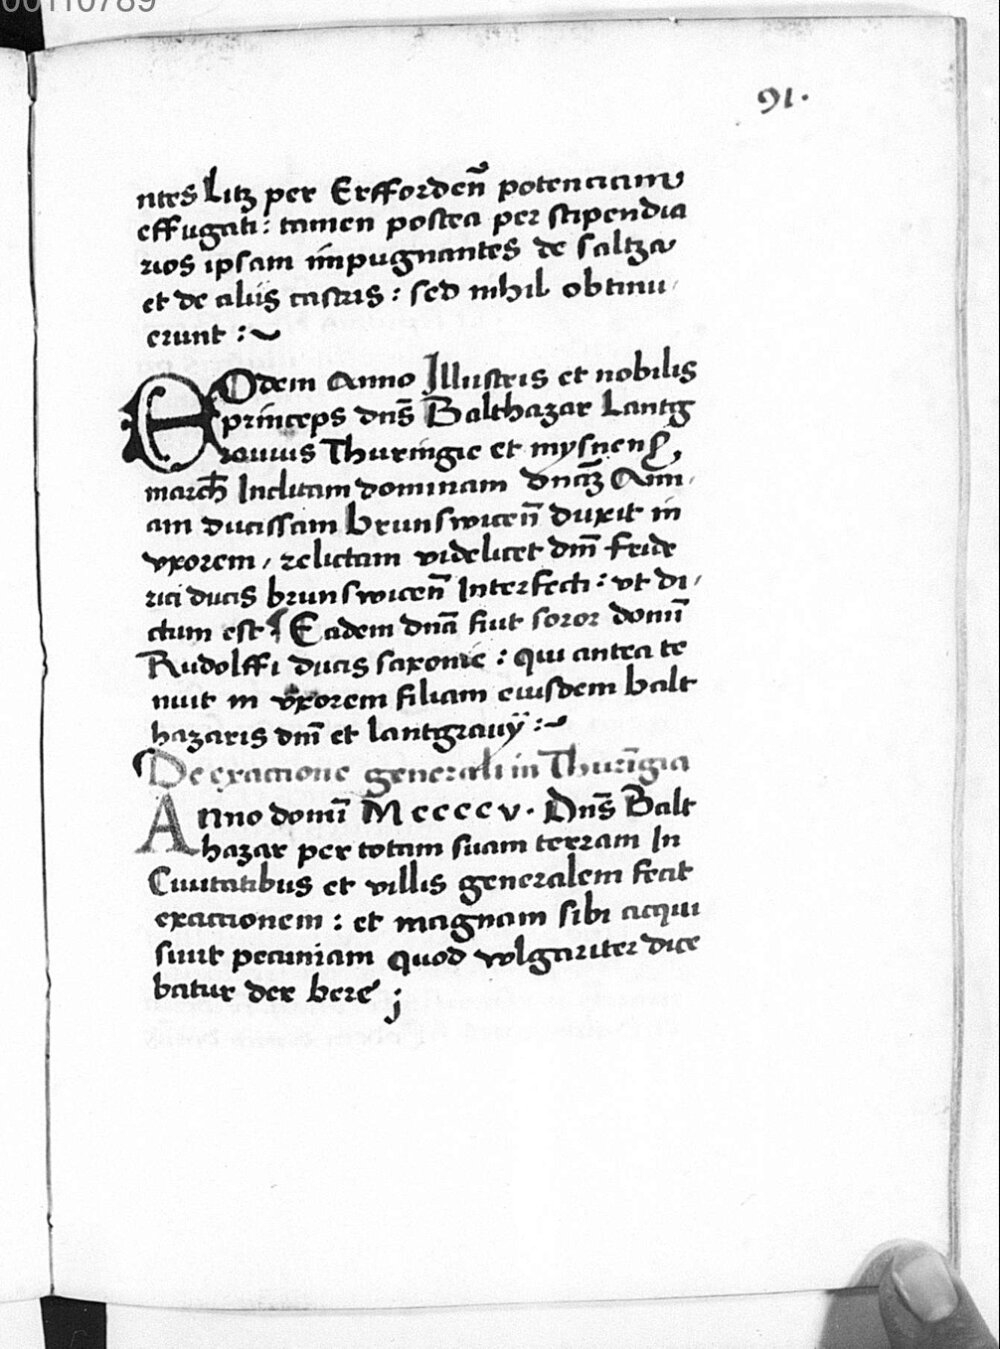 00110789
91.
ntes Litz per Erfforden̄ potenciam
effugati : tamen postea per stipendia
rios ipsam impugnantes de saltza
et de aliis castris : sed nihil obtinu
erunt :~
EOdem Anno Illustris et nobilis
princeps dn̄s Balthazar Lantg
rauius Thuringie et mysnen
march̄ Inclitam dominam dnā Ann
am ducissam brunswicen̄ duxit in
vxorem / relictam videlicet dn̄i fride
rici ducis brunswicen̄ Interfecti : vt di /
ctum est Eadem dnā fuit soror domī
Rudolffi ducis saxonie : qui antea te
nuit in vxorem filiam eiusdem balt
hazaris dn̄i et lantgrauÿ :~
De exactione generali in Thurīgia
Anno domī Mccccv. Dn̄s Balt
hazar per totam suam terram In
Ciuitatibus et villis generalem fecit
exactionem : et magnam sibi acqui
siuit pecuniam quod vulgariter dice
batur der bere ;